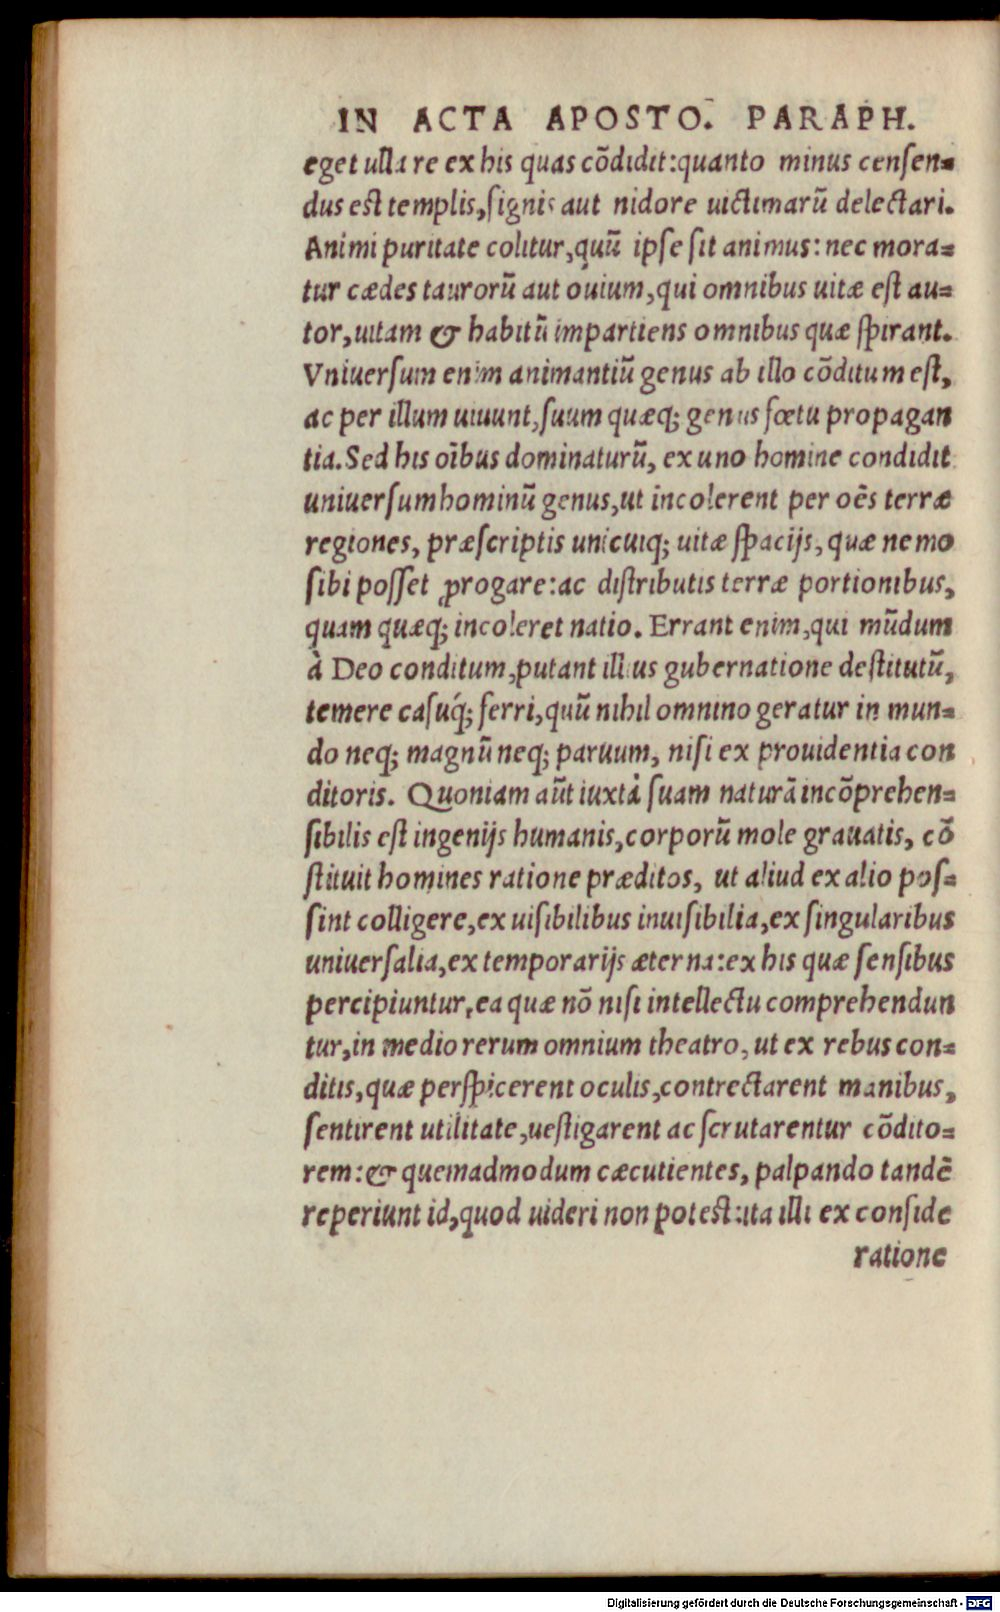 IN ACTA APOSTO. PARAPH.
eget ulla re ex his quas cõdidit:quanto minus censen=
dus est templis,signis aut nidore uictimarũ delectari.
Animi puritate colitur,quũ ipse sit animus: nec mora=
tur cædes taurorũ aut ouium,qui omnibus uitæ est au=
tor,uitam & habitũ impartiens omnibus quæ spirant.
Vniuersum enim animantiũ genus ab illo cõditum est,
ac per illum uiuunt,suum quæq; genus fœtu propagan
tia. Sed his oĩbus dominaturũ, ex uno homine condidit
uniuersum hominũ genus,ut incolerent per oẽs terræ
regiones, præscriptis unicuiq; uitæ spacijs, quæ nemo
sibi posset ꝓrogare:ac distributis terræ portionibus,
quam quæq; incoleret natio. Errant enim,qui mũdum
à Deo conditum,putant illius gubernatione destitutũ,
temere casuq́; ferri,quũ nihil omnino geratur in mun=
do neq; magnũ neq; paruum, nisi ex prouidentia con
ditoris. Quoniam aũt iuxtà suam naturã incõprehen=
sibilis est ingenijs humanis,corporũ mole grauatis, cõ
stituit homines ratione præditos, ut aliud ex alio pos=
sint colligere,ex uisibilibus inuisibilia,ex singularibus
uniuersalia,ex temporarijs æterna:ex his quæ sensibus
percipiuntur,ea quæ nõ nisi intellectu comprehendun
tur,in medio rerum omnium theatro, ut ex rebus con=
ditis,quæ perspicerent oculis,contrectarent manibus,
sentirent utilitate,uestigarent ac scrutarentur cõdito=
rem: & quemadmodum cæcutientes, palpando tandẽ
reperiunt id,quod uideri non potest:ita illi ex conside
ratione
Digitalisierung gefördert durch die Deutsche Forschungsgemeinschaft - DFG